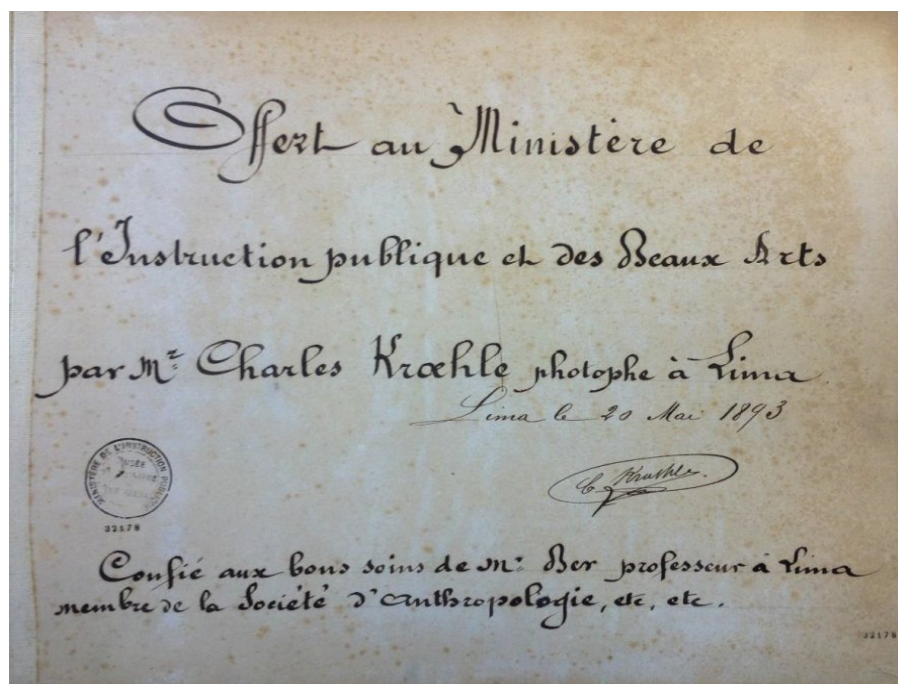 Offert au Ministère de
l'Instruction publique et des Beaux Arts
par Mr. Charles Krœhle photophe à Lima
Lima le 20 Mai 1893
C. Krœhle.
MINISTÈRE DE L'INSTRUCTION PUBLIQUE
MUSÉE
32178
Confié aux bons soins de Mr. Ber professeur à Lima
membre de la Société d'Anthropologie, etc, etc.
32178